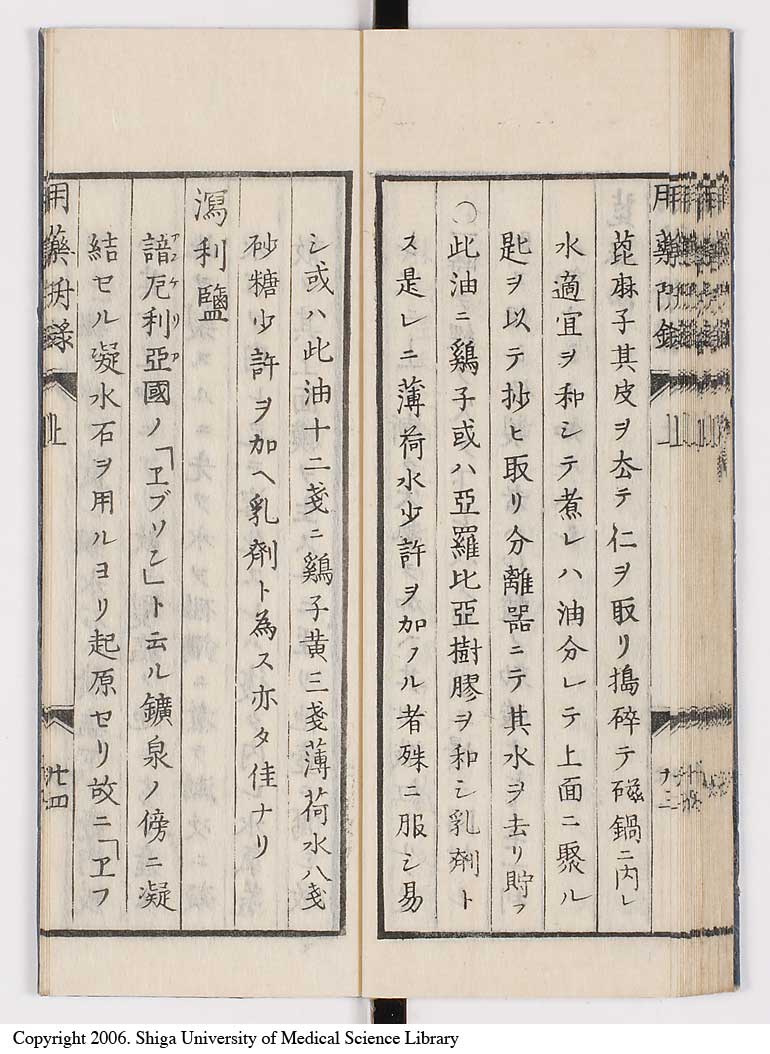 蓖麻子其皮ヲ厺テ仁ヲ取リ搗碎テ磁鍋ニ内レ
水適宜ヲ和シテ煮レハ油分レテ上面ニ聚ル
匙ヲ以テ抄ヒ取リ分離器ニテ其水ヲ去リ貯フ
〇此油ニ鷄子或ハ亞羅比亞樹膠ヲ和シ乳劑ト
ス是レニ薄荷水少許ヲ加フル者殊ニ服シ易
シ或ハ此油十二戔ニ鷄子黄三戔薄荷水八戔
砂糖少許ヲ加ヘ乳劑ト為ス亦タ佳ナリ
瀉利鹽
諳厄利亞國ノ「ヱブソン」ト云ル鑛泉ノ傍ニ凝
アンゲリア
結セル凝水石ヲ用ルヨリ起原セリ故ニ「ヱフ
用藥 上 廿四
Copyright 2006. Shiga University of Medical Science Library